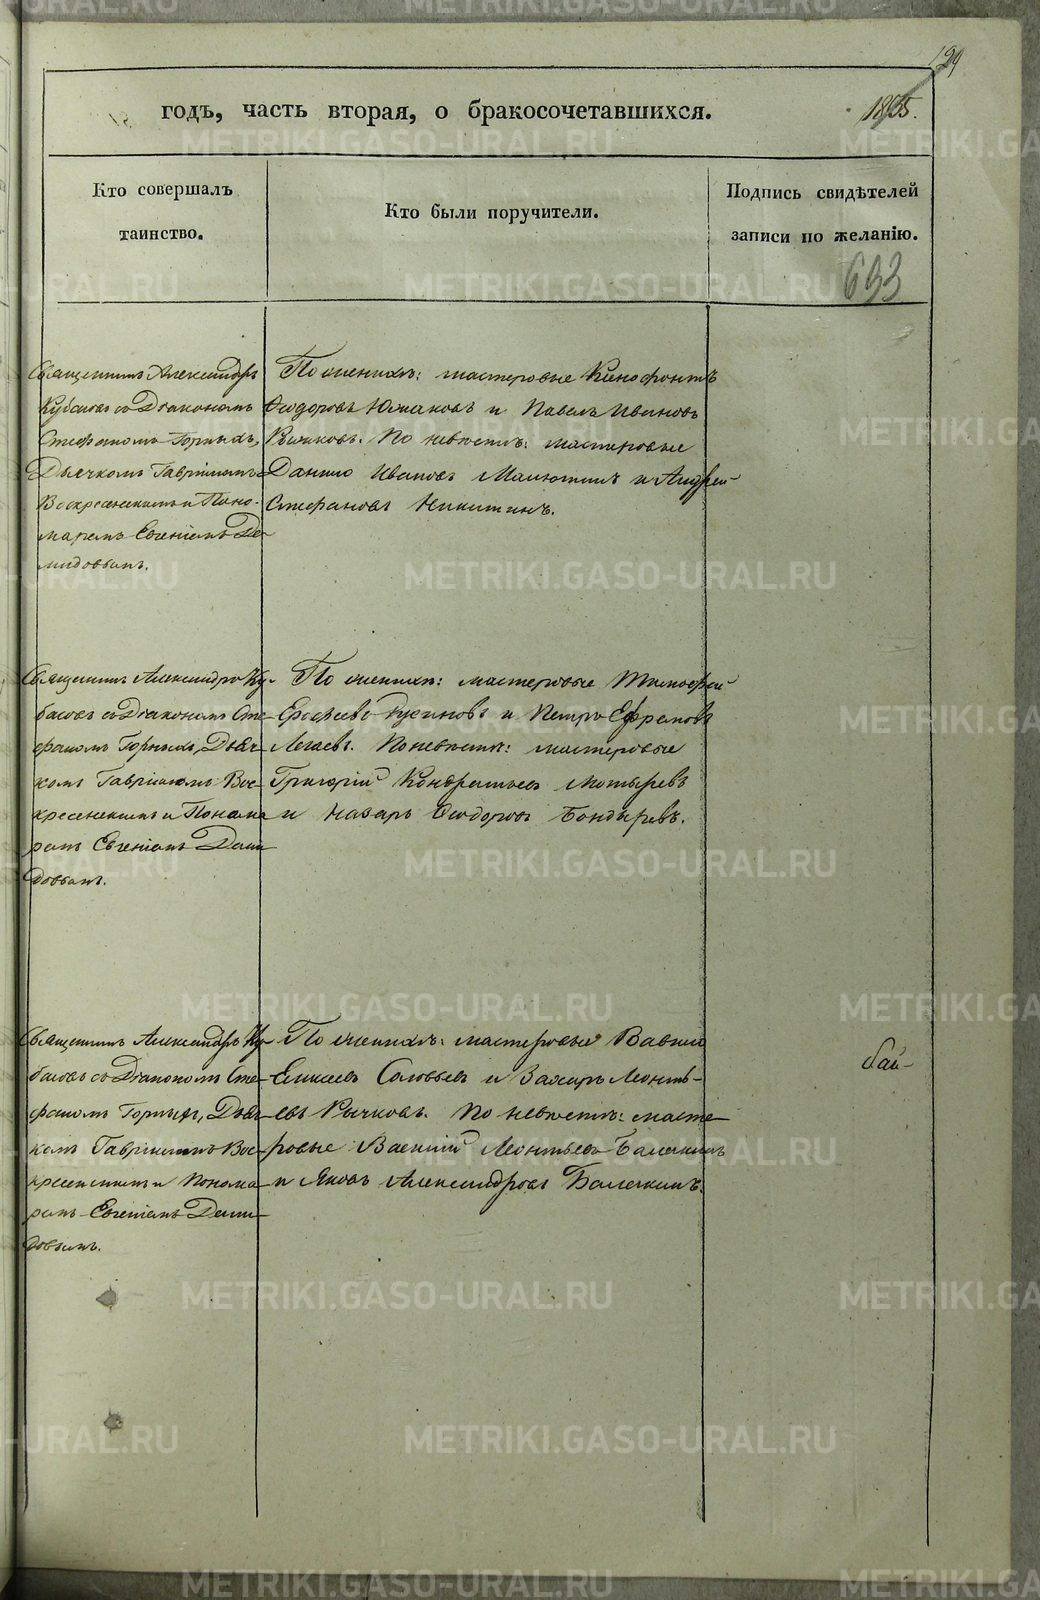 129
годъ, часть вторая, о бракосочетавшихся.
1855.
Кто совершалъ
таинство.
Кто были поручители.
Подпись свидѣтелей
записи по желанію.
633
Священникъ Александръ
Кубасовъ съ Діакономъ
Стефаномъ Горныхъ,
Дьячкомъ Гавріиломъ
Воскресенскимъ и Поно-
маремъ Евгеніемъ Де-
мидовымъ.
По женихѣ: мастеровые Ксенофонтъ
Ѳеодоровъ Южаковъ и Павелъ Ивановъ
По невѣстѣ: мастеровые
Данило Ивановъ Малютинъ и Андрей
Стефановъ Никитинъ.
Священникъ Александръ Ку-
басовъ съ Діакономъ Сте-
фаномъ Горныхъ, Дьяч-
комъ Гавріиломъ Вос-
кресенскимъ и Понома-
ремъ Евгеніемъ Деми-
довымъ.
По женихѣ: мастеровые Тимофей
Ерофеевъ Русиновъ и Петръ Ефремовъ
По невѣстѣ: мастеровые
Григорій Кондратьевъ Мотыревъ
и Назаръ Ѳеодоровъ Бондыревъ.
Священникъ Александръ Ку-
басовъ съ Діакономъ Сте-
фаномъ Горныхъ, Дьяч-
комъ Гавріиломъ Вос-
кресенскимъ и Понома-
ремъ Евгеніемъ Деми-
довымъ.
По женихѣ: мастеровые Вавило
Елисеевъ Соловьевъ и Захаръ Леонть-
евъ Рычковъ. По невѣстѣ: масте-
ровые Василій Леонтьевъ Балакинъ
и Яковъ Александровъ Балакинъ.
бай-
METRIKI.GASO-URAL.RU